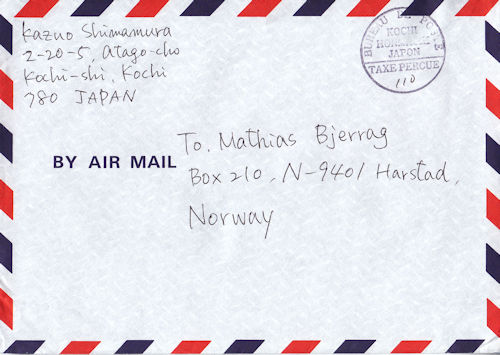 Kazuo Shimamura
2-20-5, Atago-cho
Kochi-shi, Kochi
780 JAPAN
BUREAU DE POSTE
KOCHI
JAPON
TAXE PERCUE
110
To. Mathias Bjerrag
BY AIR MAIL
Box 210, N-9401 Harstad,
Norway